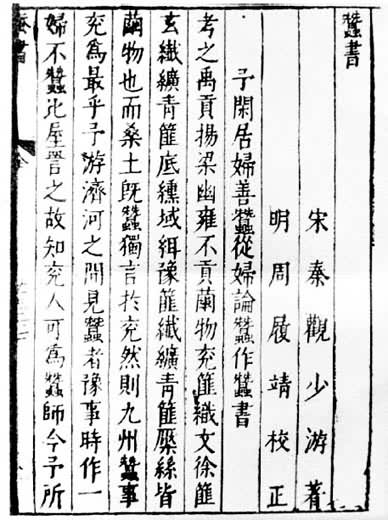 蠶書
宋秦觀少游著
明周履靖校正
予閑居婦善蠶從婦論蠶作蠶書
考之禹貢揚梁幽雍不貢繭物兖篚織文徐篚
玄纖纊青篚底纁域緝豫篚纖纊青篚檿絲皆
繭物也而桑土既蠶獨言於兖然則九州蠶事
兖爲最乎予游濟河之間見蠶者豫事時作一
婦不蠶比屋詈之故知兖人可爲蠶師今予所
蚕書